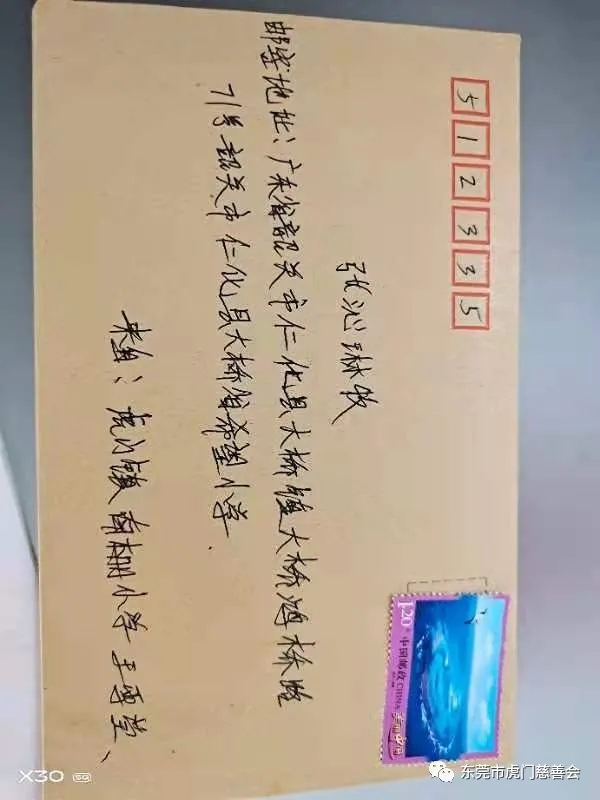 512335
张沁琳收
邮寄地址:广东省韶关市仁化县大桥镇大桥桥路
71号韶关市仁化县大桥镇希望小学.
来自:虎门镇南栅小学
1.20元
中国邮政 CHINA
美丽中国
X30 5G
东莞市虎门慈善会